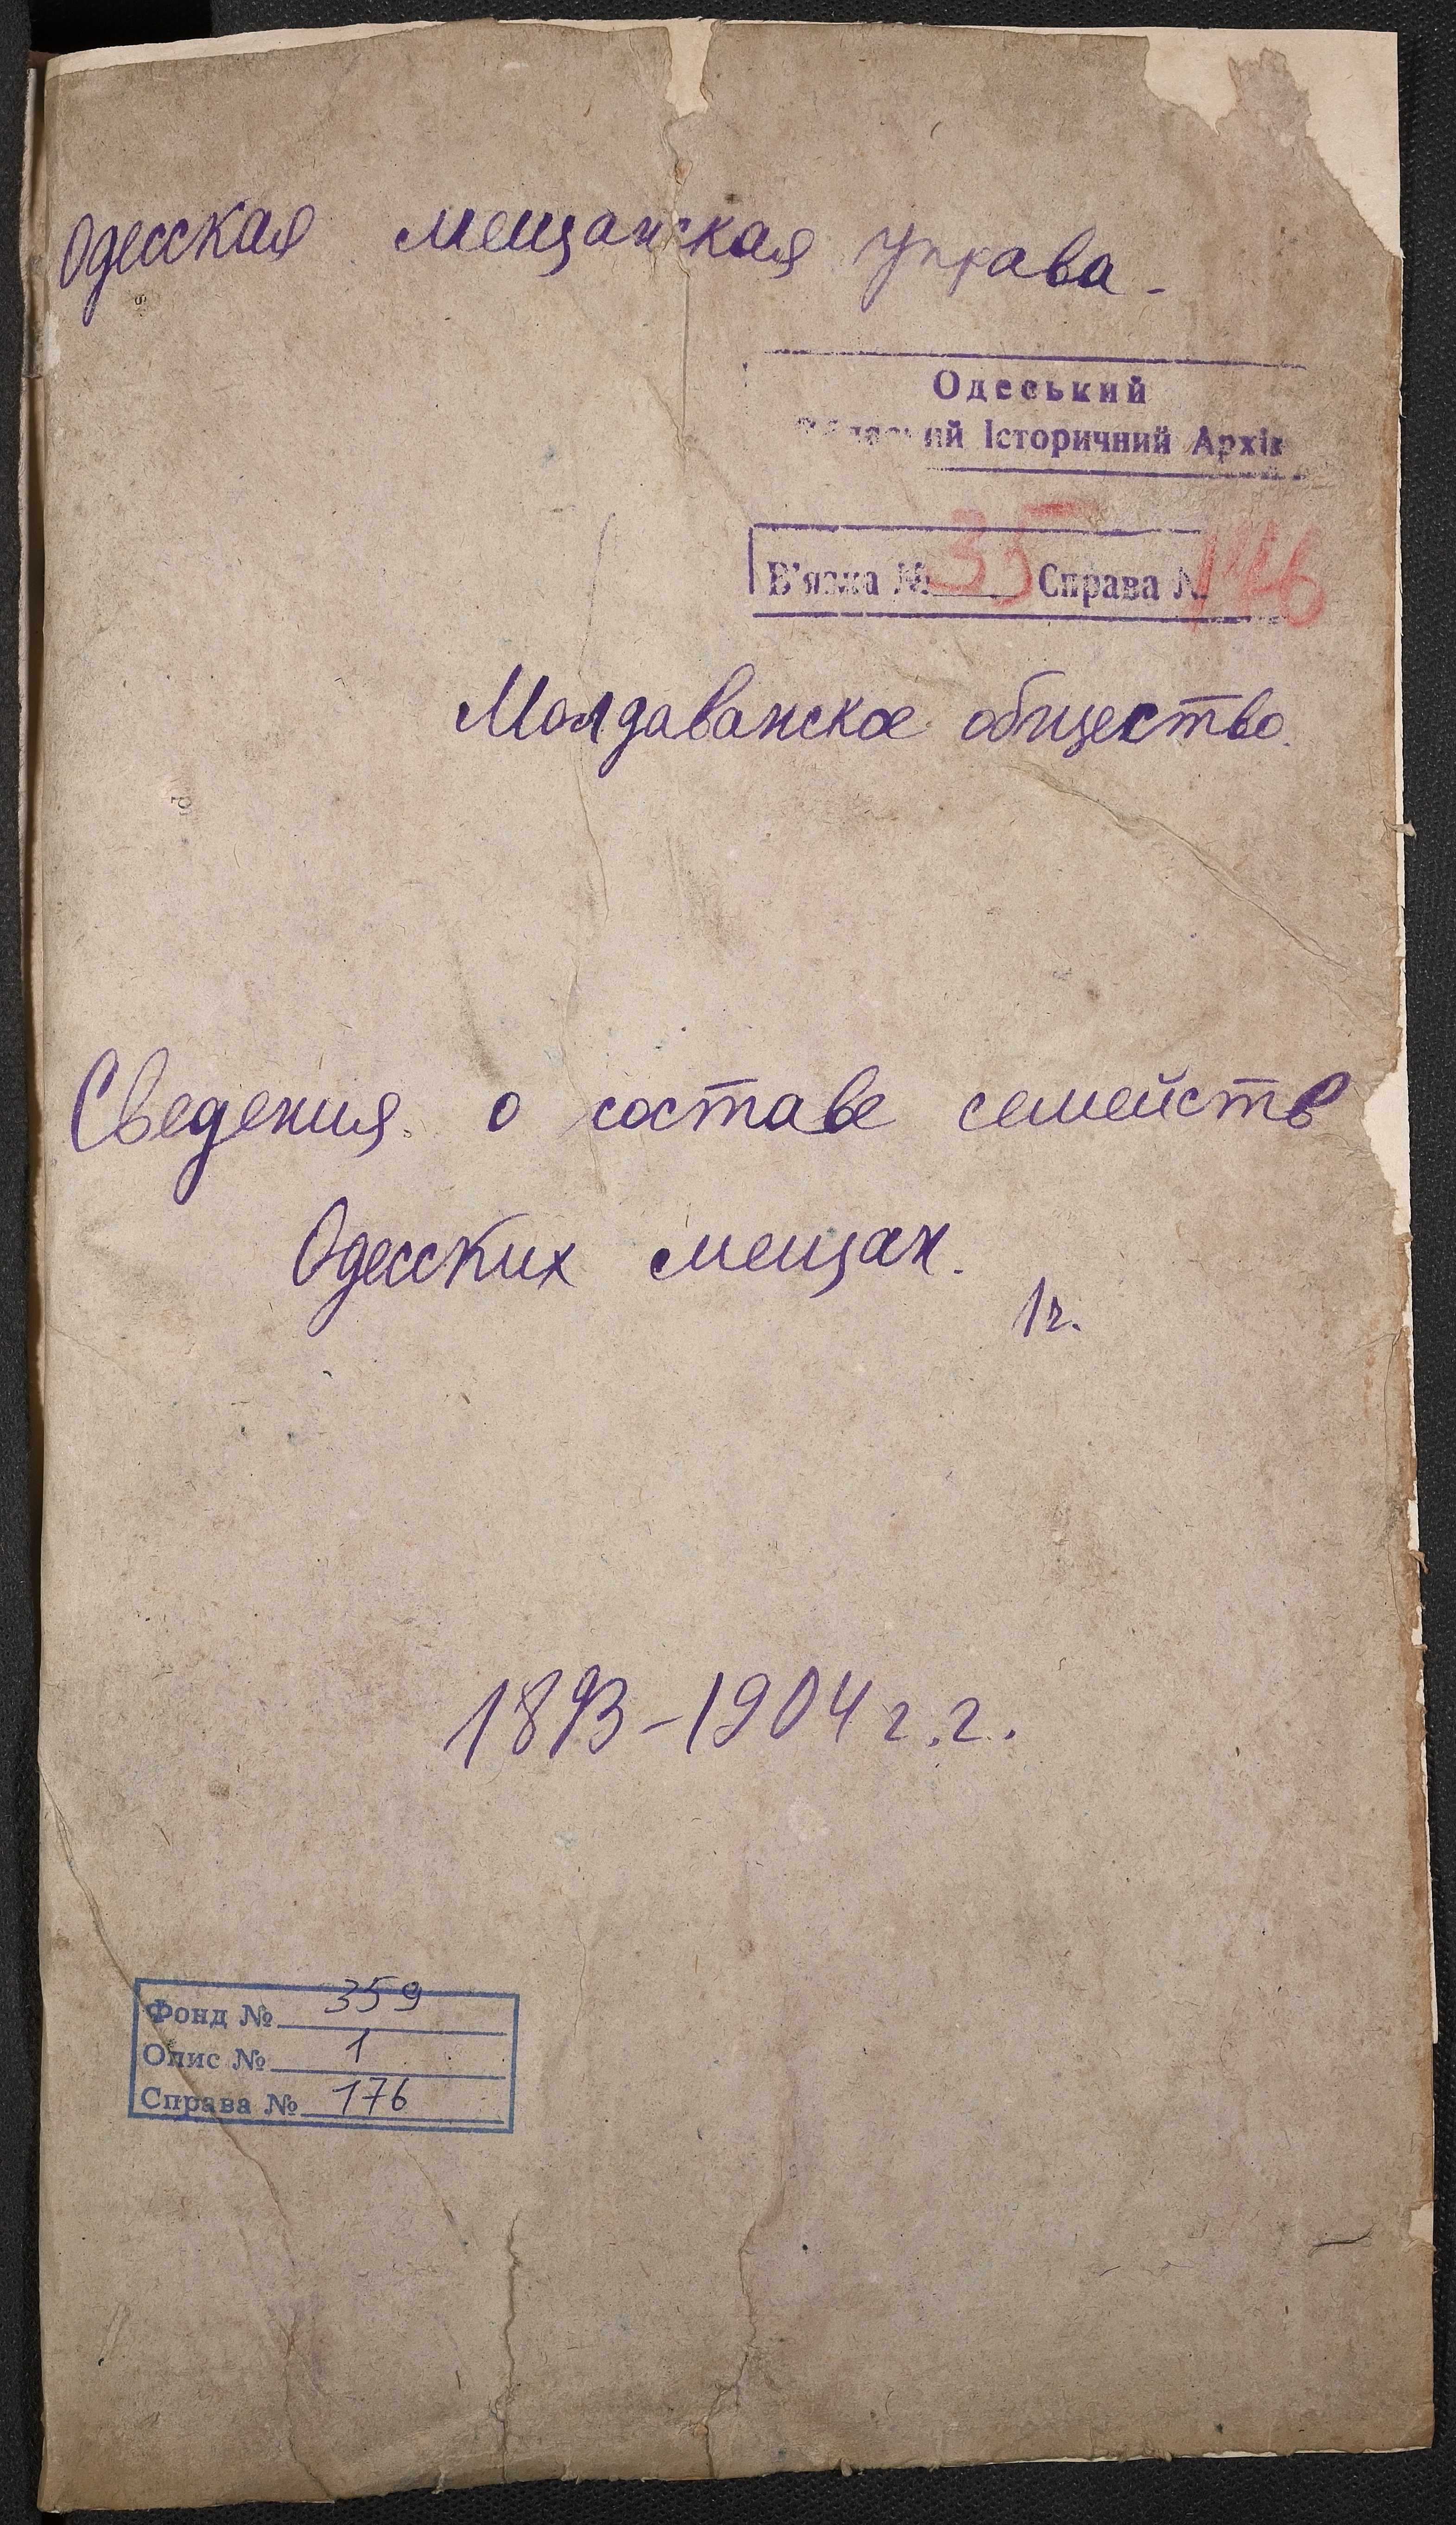 Одесская мещанская управа -
Одеський
Історичний Архів
В'язка № 35 Справа №
Молдаванское общество.
Сведения о составе семейств
Одесских мещан.
1ч.
1893-1904 г.г.
Фонд № 359
Опис № 1
Справа № 176